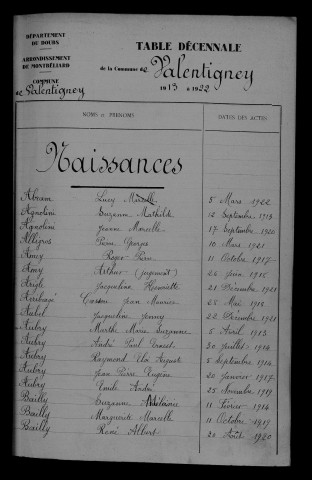 DÉPARTEMENT
DU DOUBS
ARRONDISSEMENT
DE MONTBÉLIARD
COMMUNE
de Valentigney
TABLE DÉCENNALE
de la Commune de Valentigney
1913 à 1922
NOMS et PRÉNOMS
DATES DES ACTES
Naissances
Abram Lucy Marcelle 5 Mars 1922
Agnolini Suzanne Mathilde 12 Septembre 1919
Agnolini Jeanne Marcelle 17 Septembre 1920
Pierre Georges 10 Mars 1921
Amey Roger Pierre 11 Octobre 1917
Amey Arthur (jugement) 26 Juin 1915
Jacqueline Henriette 21 Décembre 1921
Jean Maurice 25 Mai 1918
Aubel Jacqueline Jenny 22 Décembre 1921
Aubry Marthe Marie Suzanne 5 Avril 1913
Aubry André Paul Ernest 20 Juillet 1914
Aubry Raymond Eloi Auguste 5 Septembre 1914
Aubry Jean Pierre Eugène 20 Janvier 1917
Aubry Emile André 25 Novembre 1917
Bailly Suzanne 11 Février 1914
Bailly Marguerite Marcelle 11 Octobre 1919
Bailly René Albert 20 Août 1920